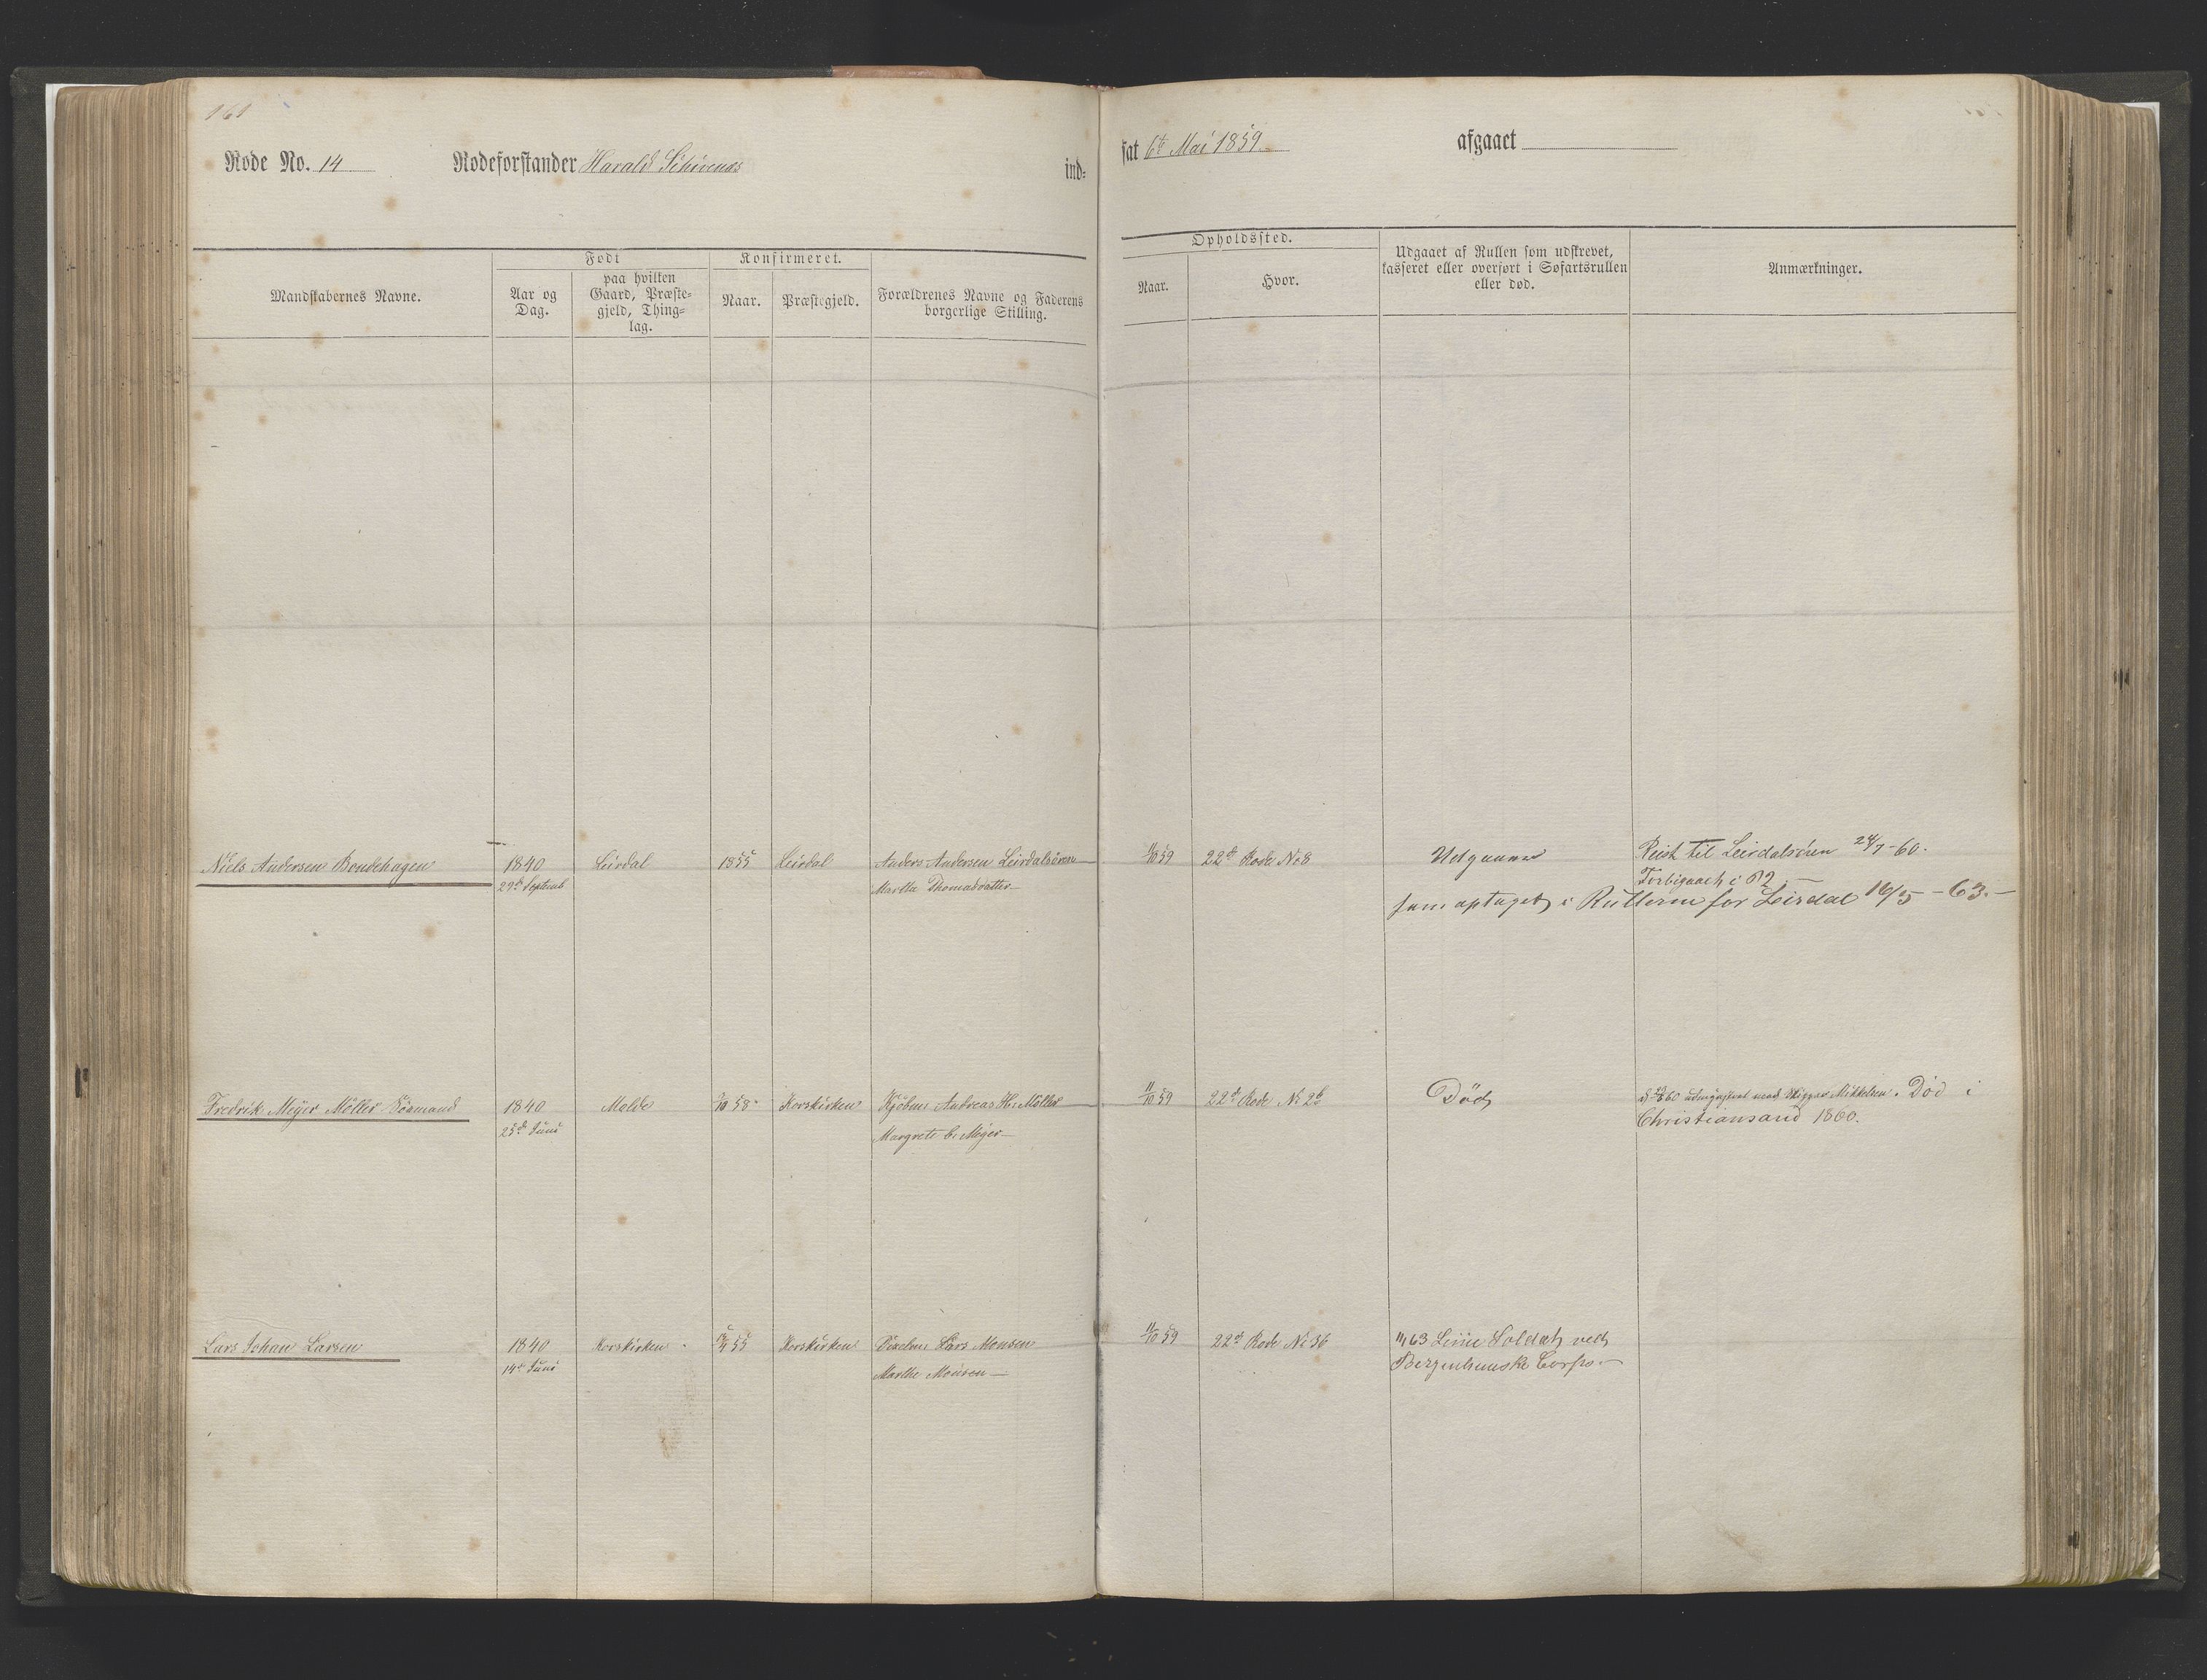 161
Rode No. 14 Rodeforstander Harald Schivenæs ind=
sat 6te Mai 1859. afgaaet
Mandskabernes Navne.
Født
Aar og Dag.
paa hvilken Gaard, Præste=
gjeld, Thing=
lag.
Konfirmeret.
Naar. Præstegjeld.
Forældrenes Navne og Faderens
borgerlige Stilling.
Opholdssted.
Naar. Hvor.
Udgaaet af Rullen som udskrevet,
kasseret eller overført i Søfartsrullen
eller død.
Anmærkninger.
Niels Andersen Bondehagen 1840 Leirdal 1855 Leirdal Anders Andersen Leirdalsøren 11/10 59 22de Rode No 8 Udgaaaer Reist til Leirdalsøren 24/7-60.
29de Septemb Marthe Thomasdatter Forbigaaet i 62.
som optaget i Rullerne for Leirdal 16/5 - 63.
Fredrik Meyer Møller Sömand 1840 Molde 2/10 58 Korskirken Kjøbm Andreas H. Møller 11/10 59 22de Rode No 26 Død udmynstret med Skipper Mikkelsen. Død i
25de Juni Margrete C. Meyer Christiansand 1860.
Lars Johan Larsen 1840 Korskirken 55 Korskirken Lars Monsen 11/10 59 22de Rode No 36 1/1 63 Linie Soldat ved
14de Juni Marthe Monsen Bergenhuuske Corps.